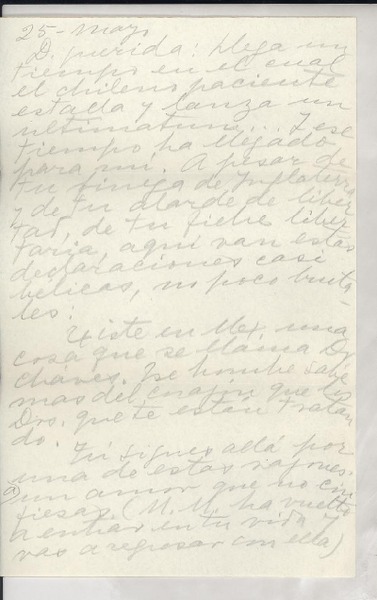 25-mayo
D. querida: Llega un
tiempo en el cual
el chileno paciente
estalla y lanza un
ultimatum... I ese
tiempo ha llegado
para mí. A pesar de
tu de Inglaterra
y de tu alarde de liber
tad, de tu fiebre liber
taria, aquí van estas
declaraciones casi
bélicas, no poco bruta-
les:
Existe en Mex. una
cosa que se llama Dr
Chávez. Ese hombre sabe
mas del corazón que los
Drs. que te están tratan
do.
Tú sigues allá por
una de estas razones:
a) un amor que no con
fiesas. (M. M. ha vuelto
a entrar en tu vida I
vas a regresar con ella)